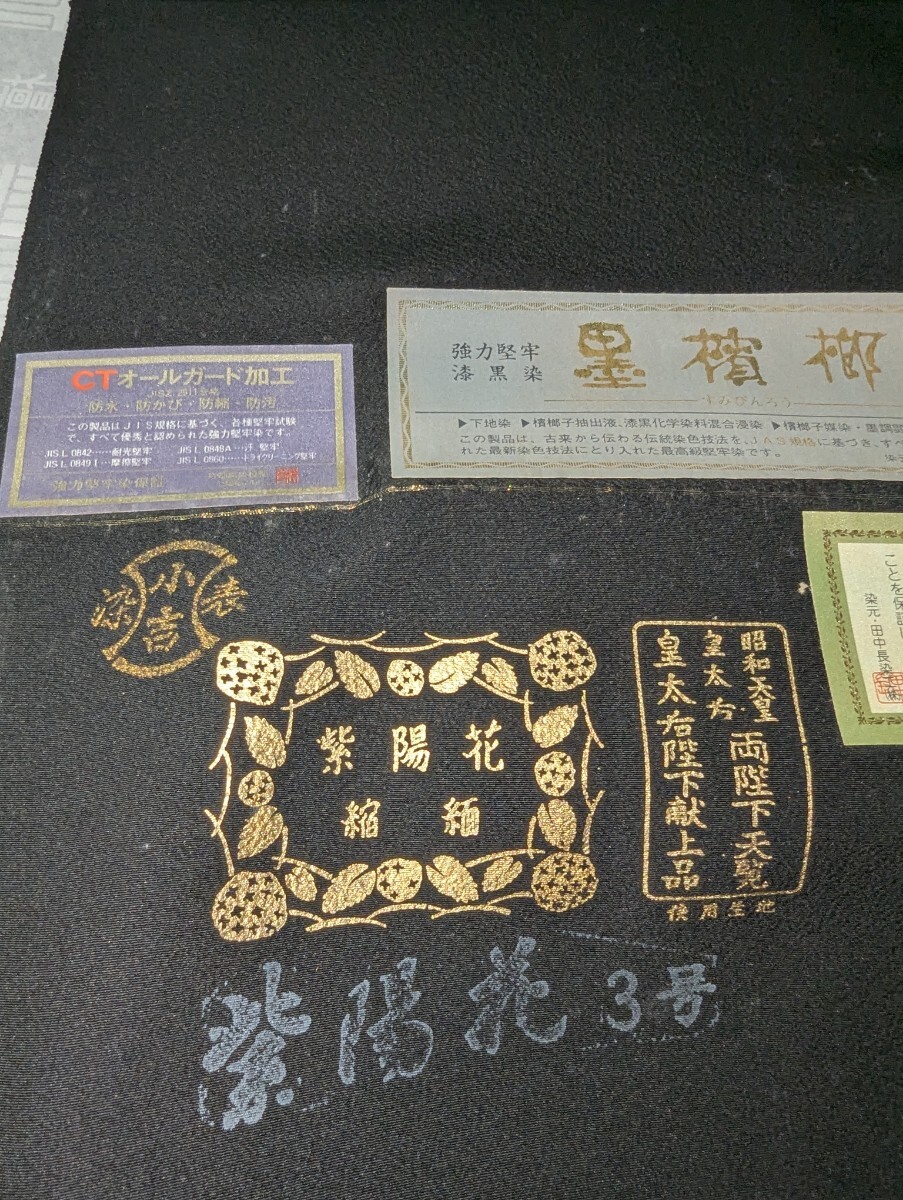 CTオールガード加工
JIS Z 2911合格
防水・防かび・防縮・防汚
この製品はJIS規格に基づく、各種堅牢試験
で、すべて優秀と認められた強力堅牢染です。
JIS L 0842……耐光堅牢 JIS L 0848A…汗 堅牢
JIS L 0849 I…摩擦堅牢 JIS L 0860……ドライクリーニング堅牢
強力堅牢染保証
強力堅牢
漆黒染
墨檳榔
すみびんろう
▶下地染 ▶檳榔子抽出液、漆黒化学染料混合浸染 ▶檳榔子媒染・墨調
この製品は、古来から伝わる伝統染色技法を、JAS規格に基づき、すべ
れた最新染色技法にとり入れた最高級堅牢染です。
染元
ことを保証し
染元・田中長染
小吉
表
紫陽花
縮緬
昭和天皇
皇太右
両陛下天覧
皇太右陛下献上品
使用生地
紫陽花 3号